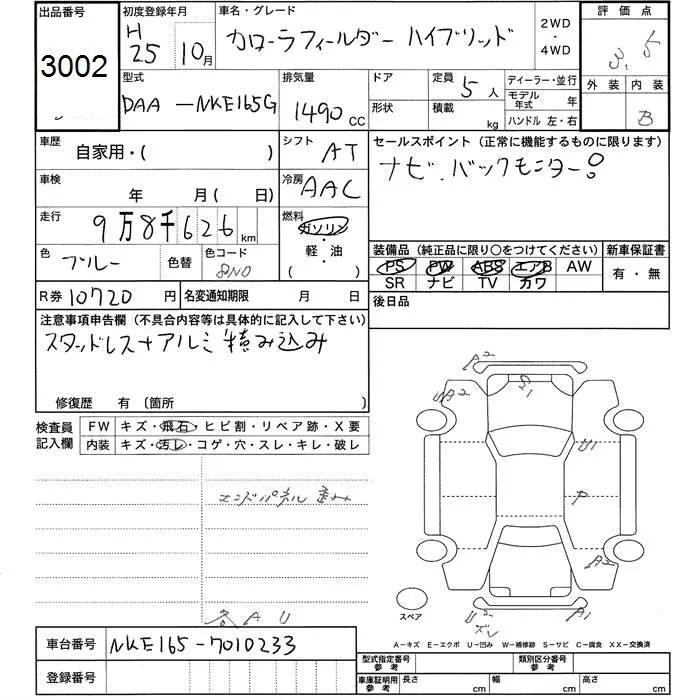 出品番号 初度登録年月 車名・グレード 2WD・4WD 評価点
3002 H25 10月 カローラフィールダー ハイブリッド 3.5
型式 排気量 ドア 定員 5人 ディーラー・並行 外装 内装
DAA-NKE165G 1490 CC 形状 積載 kg モデル年式 年 B
ハンドル 左・右
車歴 自家用・( ) シフト AT セールスポイント(正常に機能するものに限ります)
車検 年 月( 日) 冷房 AAC ナビ.バックモニター
走行 9万8千626km 燃料 ガソリン・軽・油 ( )
色 ブルー 色替 色コード 8N0 装備品(純正品に限り○をつけてください) 新車保証書
PS PW ABS エアB AW 有・無
SR ナビ TV カワ
R券 10720円 名変通知期限 月 日 後日品
注意事項申告欄(不具合内容等は具体的に記入して下さい)
スタッドレス+アルミ積み込み
修復歴 有 〔箇所 〕
検査員記入欄 FW キズ・飛石・ヒビ割・リペア跡・X要
内装 キズ・汚レ・コゲ・穴・スレ・キレ・破レ
エンドパネル 歪み
各 A U
A2
S1
UA2
U1
P
A2
U2
ズレ
A1
スペア
A-キズ E-エクボ U-凹み W-補修跡 S-サビ C-腐食 XX-交換済
車台番号 NKE165-7010233
登録番号
型式指定番号 参考 類別区分番号 参考
車庫証明用 参考 長さ cm 幅 cm 高さ cm